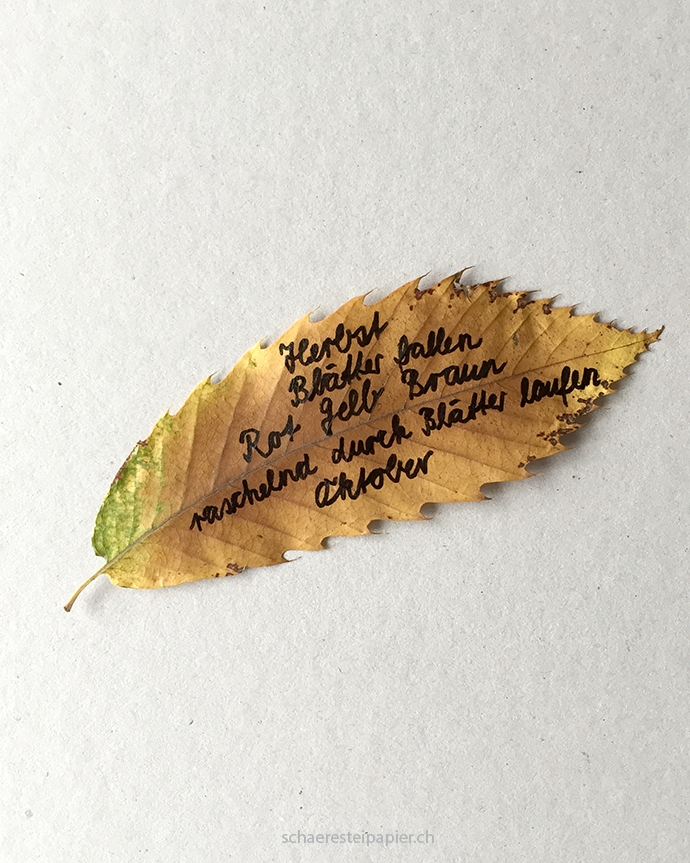 Herbst
Blätter fallen
Rot Gelb Braun
raschelnd durch Blätter laufen
Oktober
schaeresteipapier.ch